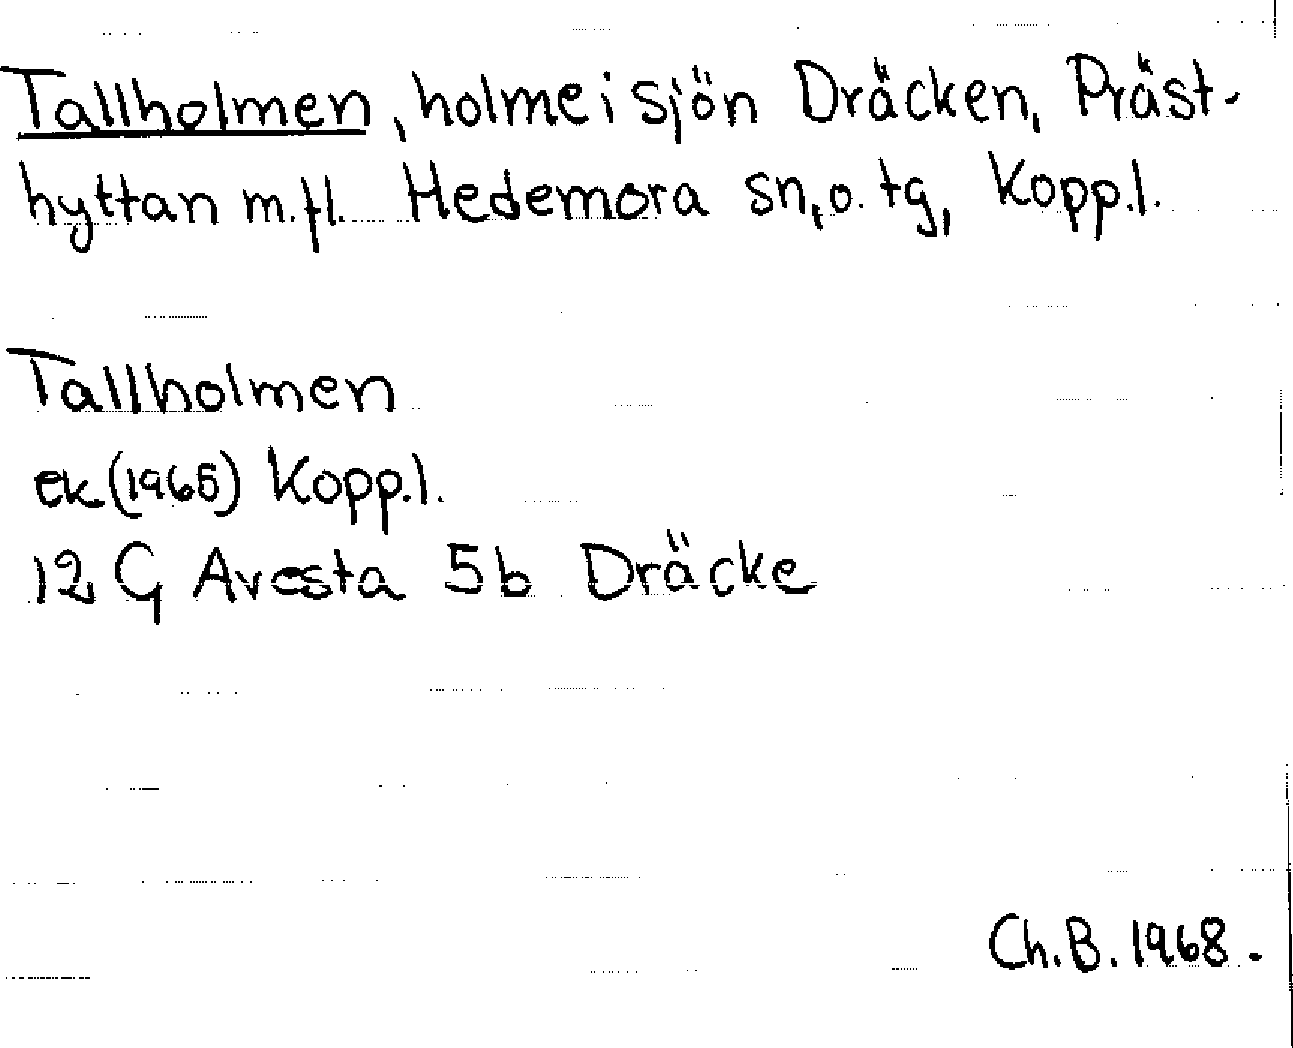 Tallholmen, holme i sjön Dräcken, Präst-
hyttan m.fl. Hedemora sn, o. tg, Kopp.l.
Tallholmen
ek (1965) Kopp.l.
12 G Avesta 5b Dräcke
Ch.B. 1968.